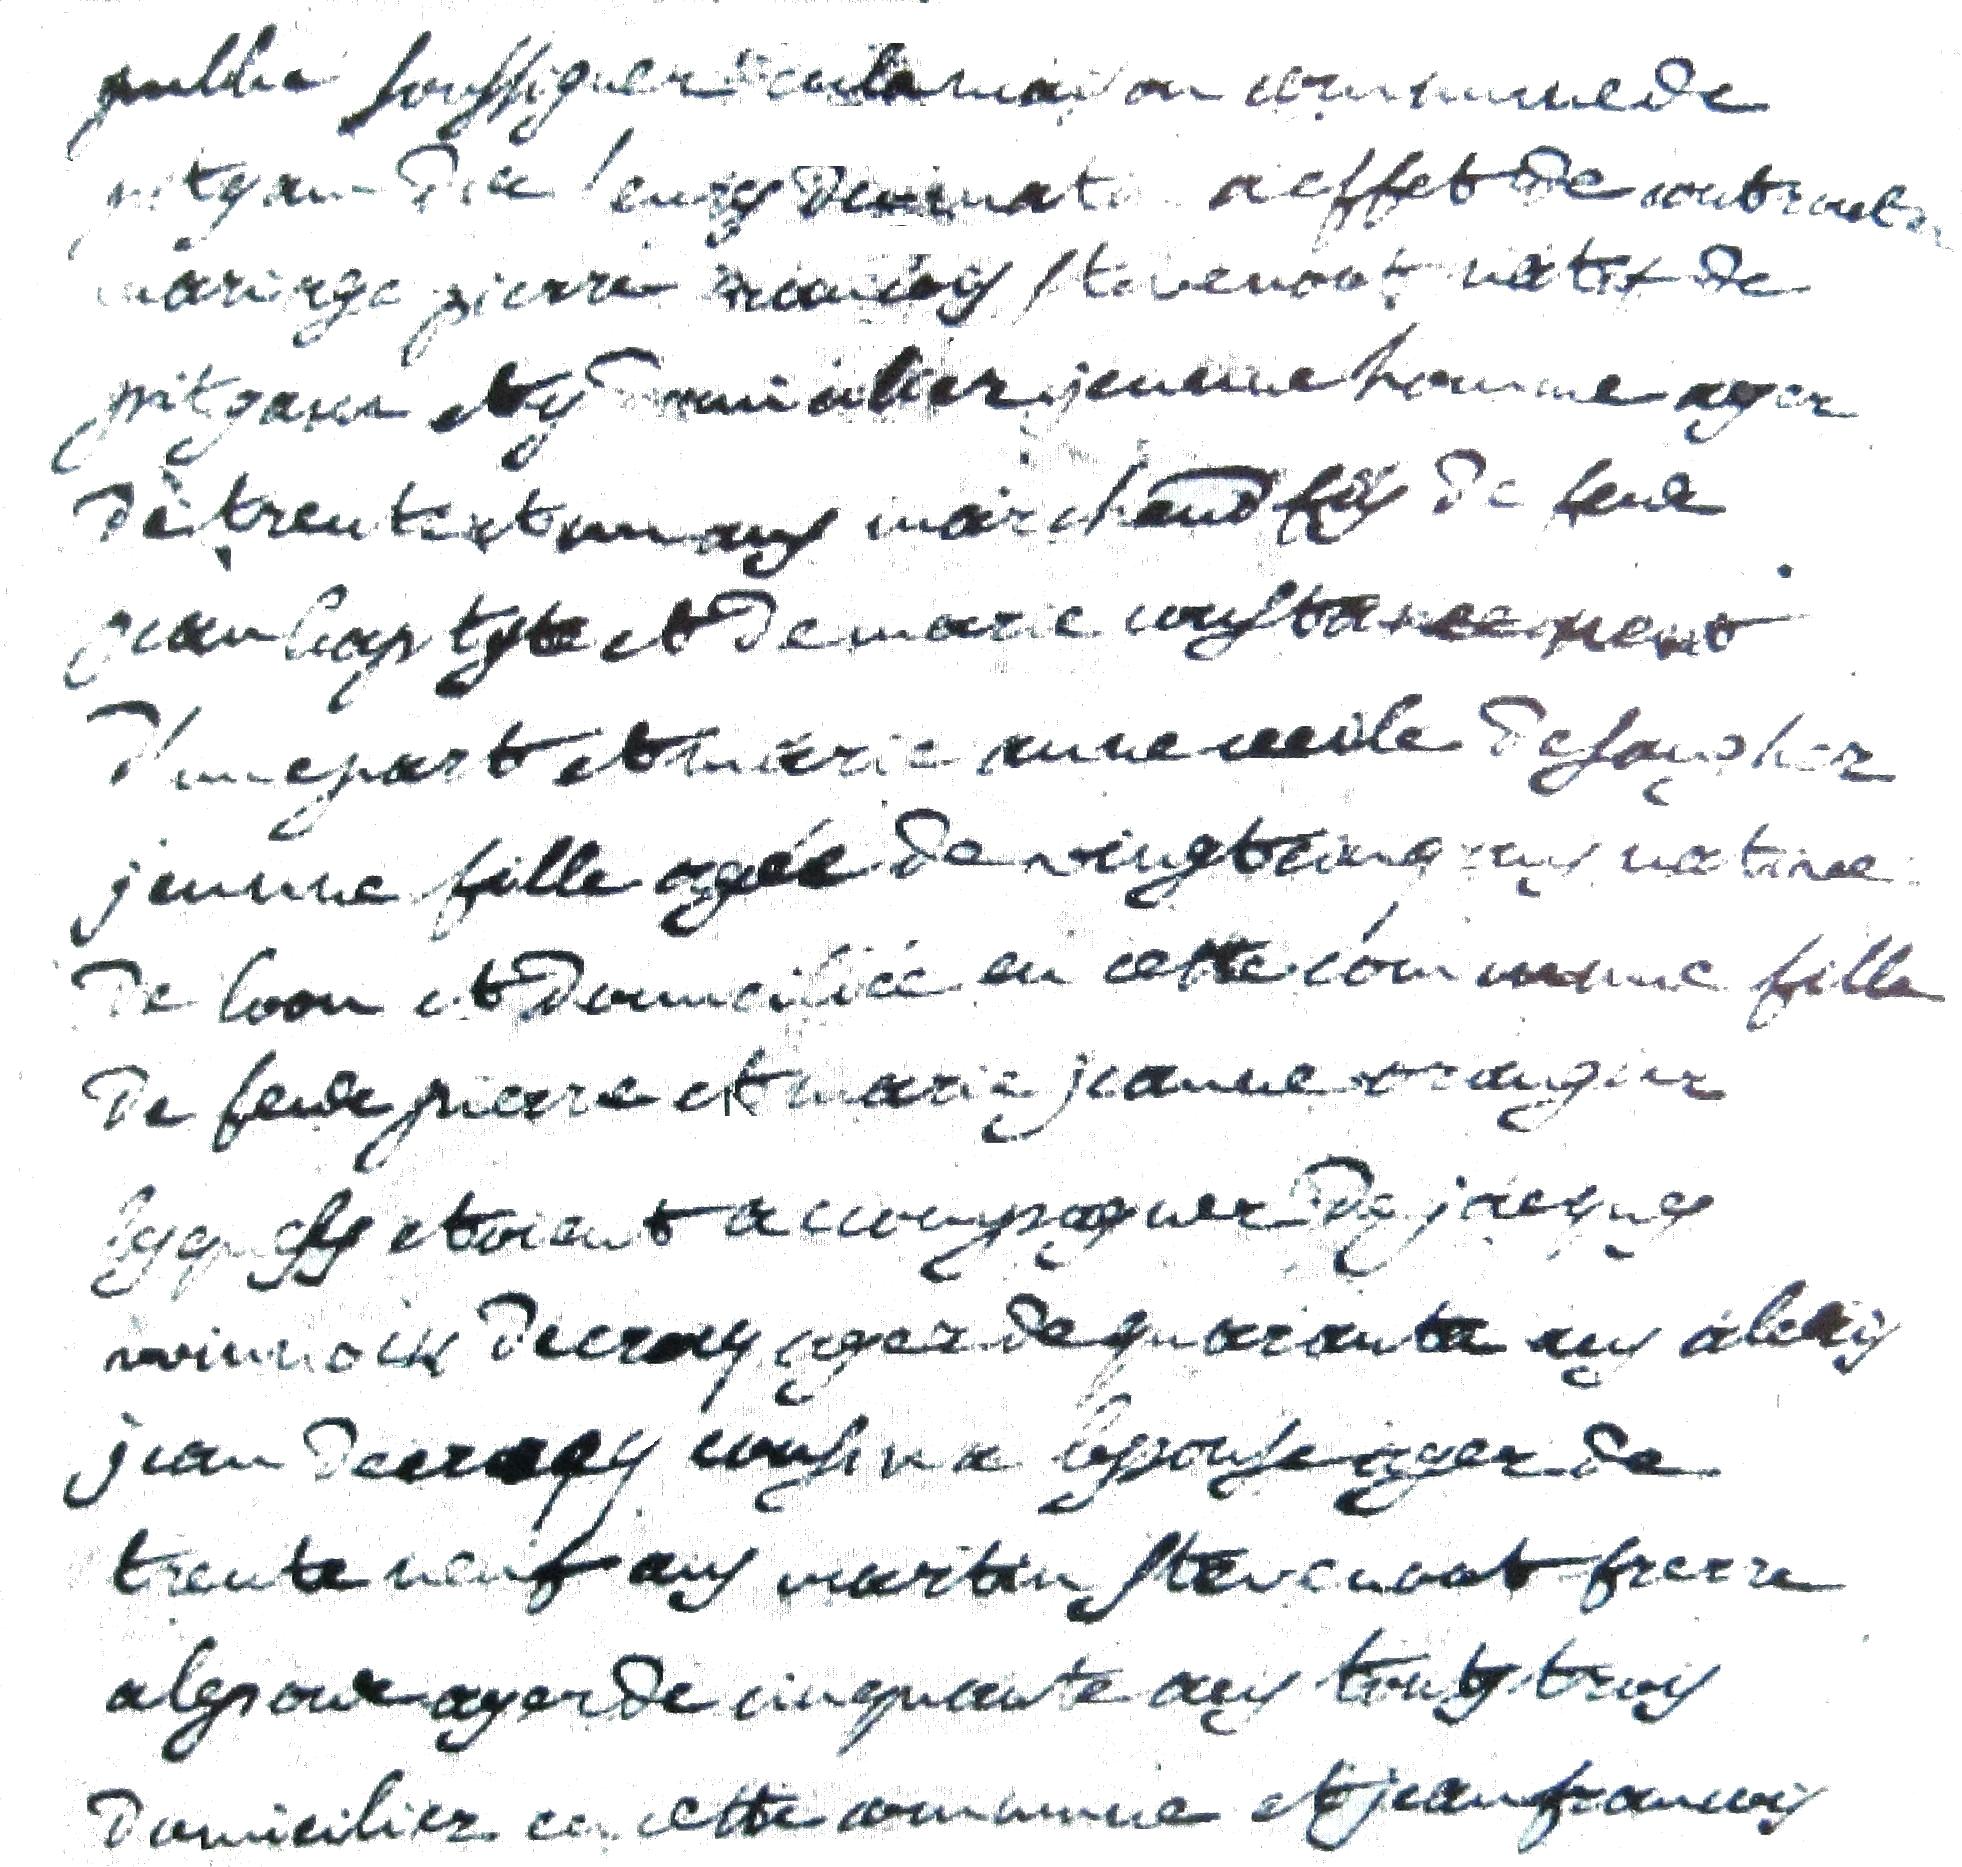 public soussigner en la maison commune de
pitgam dix heures du mati a effet de contracter
mariage pierre francois stevenoot natif de
pitgam et y domicilier jeune homme ager
de trente et un ans marchand fils de feue
jean baptyte et de marie constance
d'une part et marie anne cecile
jeune fille agée de vingt cinq ans native
de loon et domiciliée en cette commune fille
de feue pierre et marie jeanne
lesquels etoient accompagner de jacques
winnocx decrocq ager de quarante ans alexis
jean decrocq cousin a lepouse ager de
trente neuf ans martin stevenoot frere
a lepoux ager de cinquante ans touts trois
domicilier en cette commune et jean francois